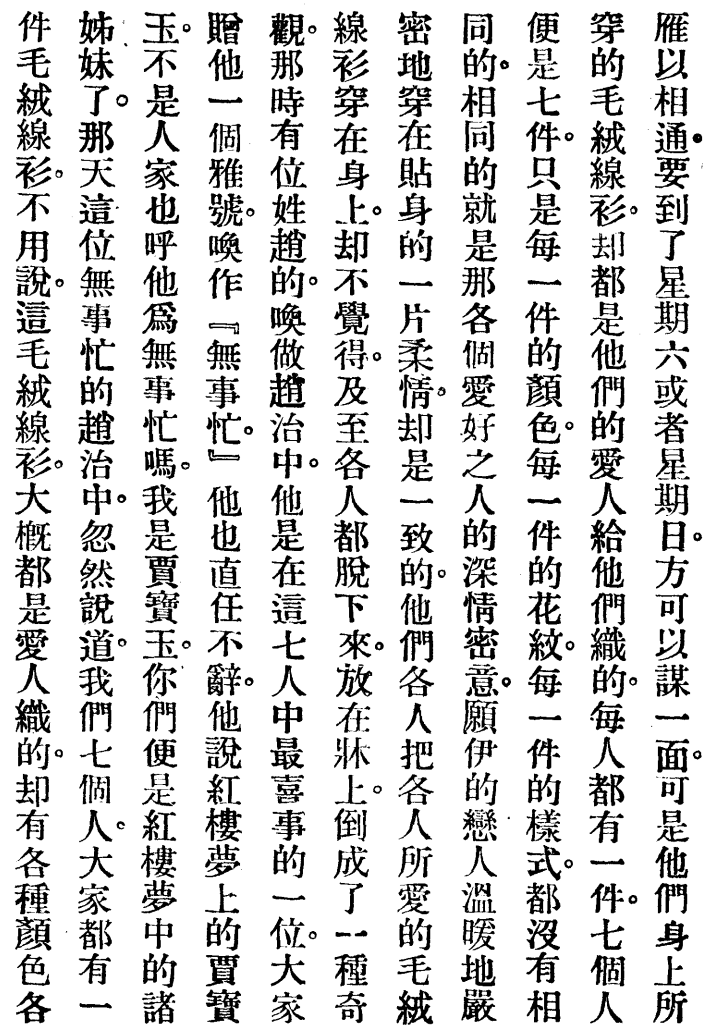 雁以相通。要到了星期六或者星期日。方可以謀一面。可是他們身上所
穿的毛絨線衫。却都是他們的愛人給他們織的。每人都有一件。七個人
便是七件。只是每一件的顏色。每一件的花紋。每一件的樣式。都沒有相
同的。相同的就是那各個愛好之人的深情密意。願伊的戀人溫暖地嚴
密地穿在貼身的一片柔情。却是一致的。他們各人把各人所愛的毛絨
線衫穿在身上。却不覺得。及至各人都脫下來。放在牀上。倒成了一種奇
觀。那時有位姓趙的。喚做趙治中。他是在這七人中最喜事的一位。大家
贈他一個雅號。喚作『無事忙。』他也直任不辭。他說紅樓夢上的賈寶
玉。不是人家也呼他爲無事忙嗎。我是賈寶玉。你們便是紅樓夢中的諸
姊妹了。那天這位無事忙的趙治中。忽然說道。我們七個人。大家都有一
件毛絨線衫。不用說。這毛絨線衫。大槪都是愛人織的。却有各種顏色各